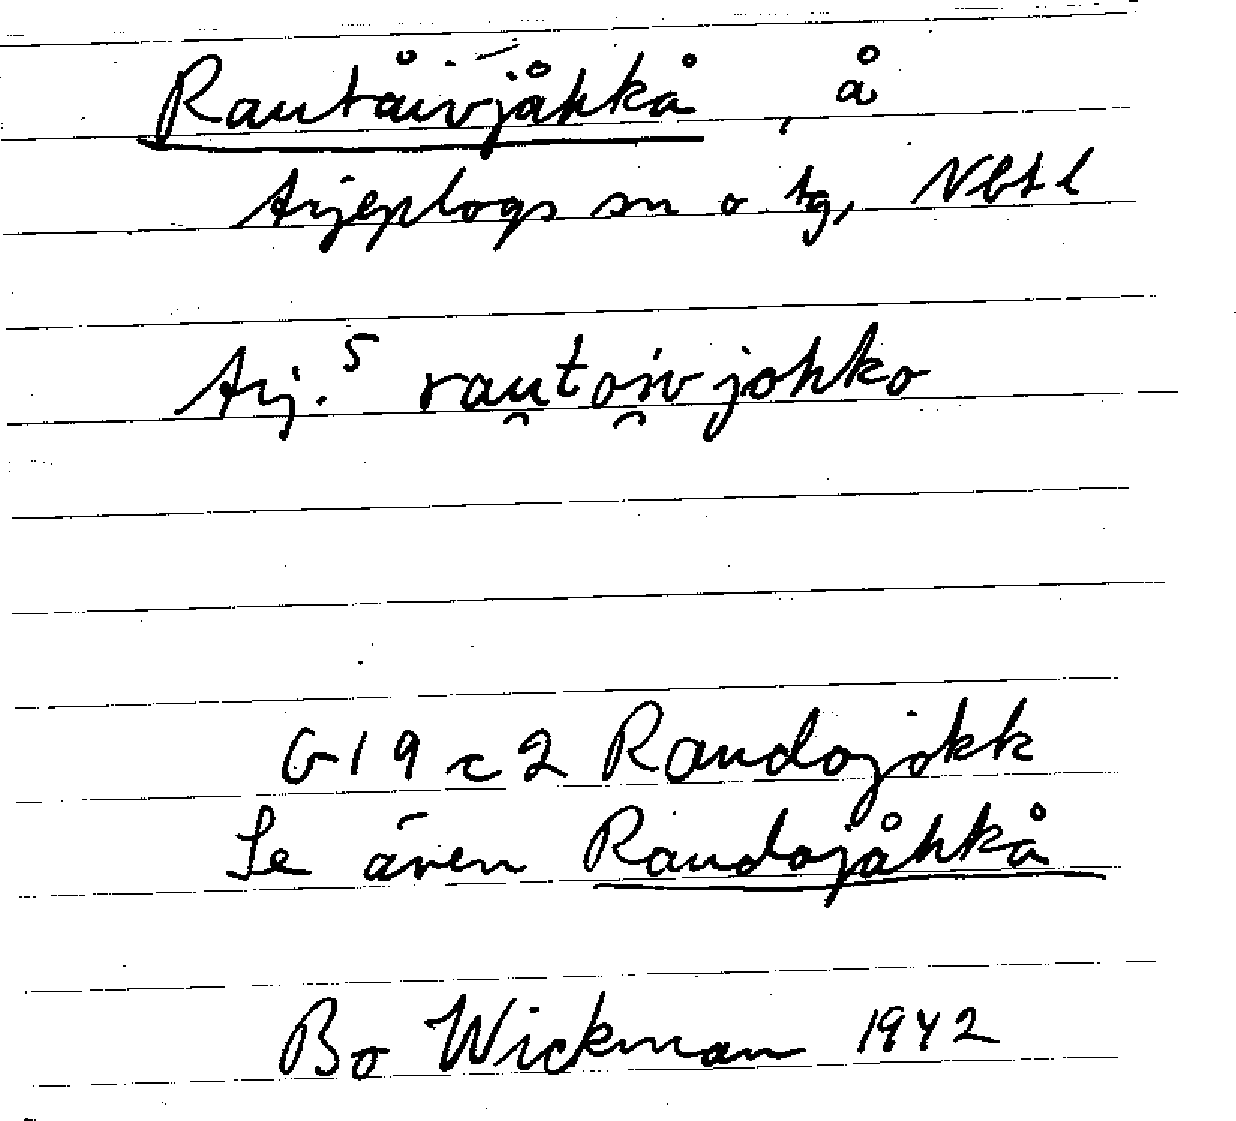 Rautåivjåhkå, å
Arjeplogs sn o tg, Nbtl
Arj.⁵ rau̯toi̯vjohko
G19c2 Raudojokk
Se även Raudojåhkå
Bo Wickman 1942